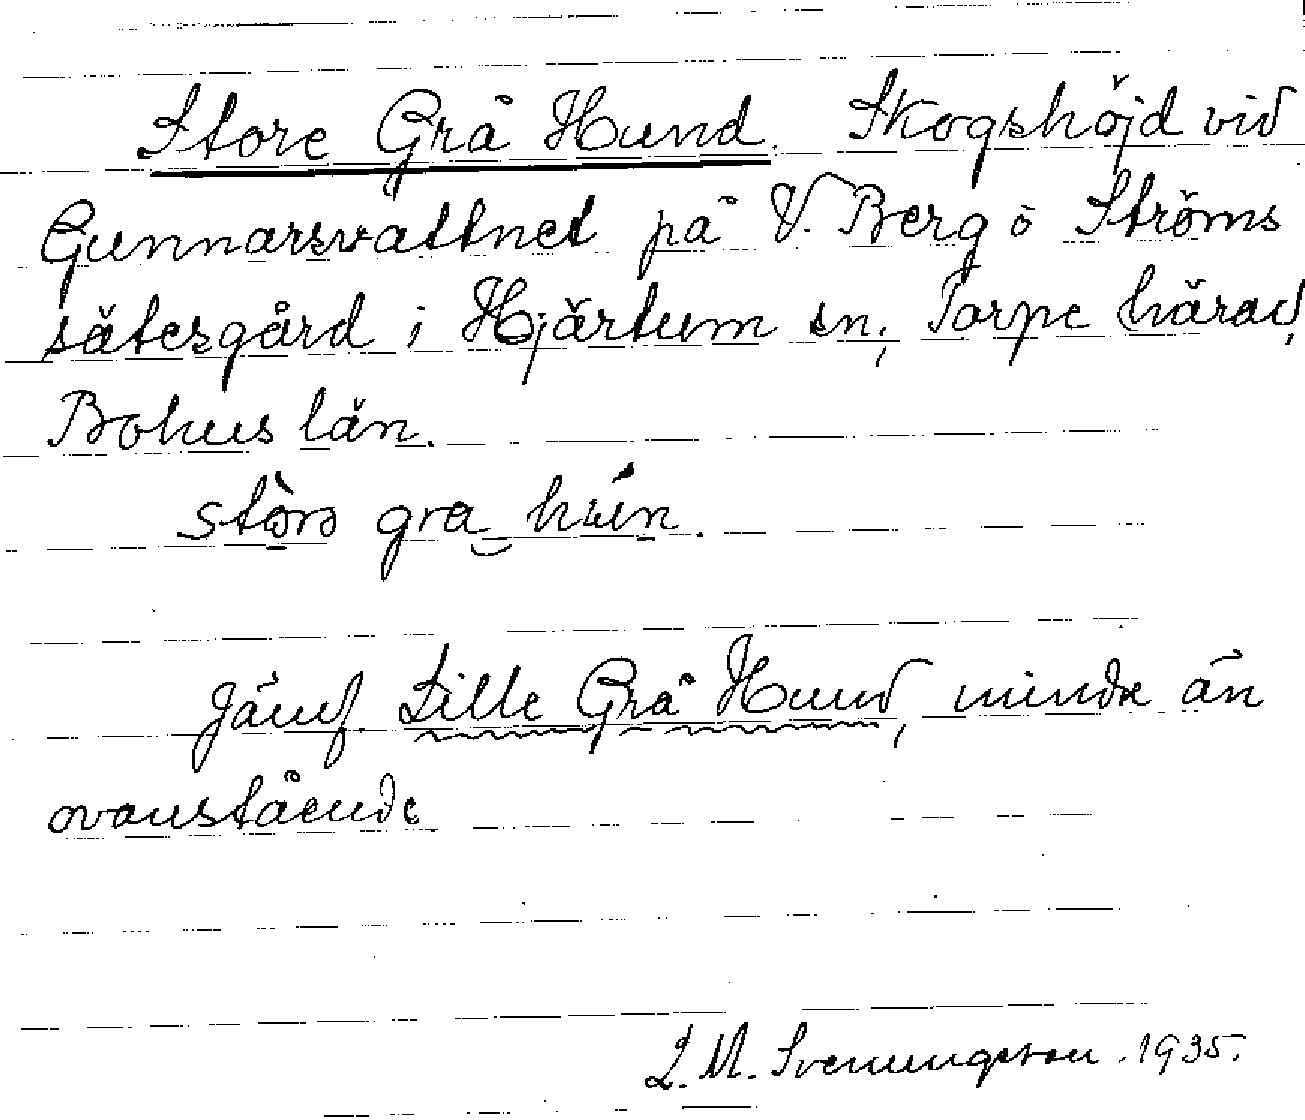 Store Grå Hund. Skogshöjd vid
Gunnarsvattnet på V. Berg o Ströms
sätesgård i Hjärtum sn, Torpe härad,
Bohus län.
jämf. Lille Grå Hund, mindre än
ovanstående
1935.